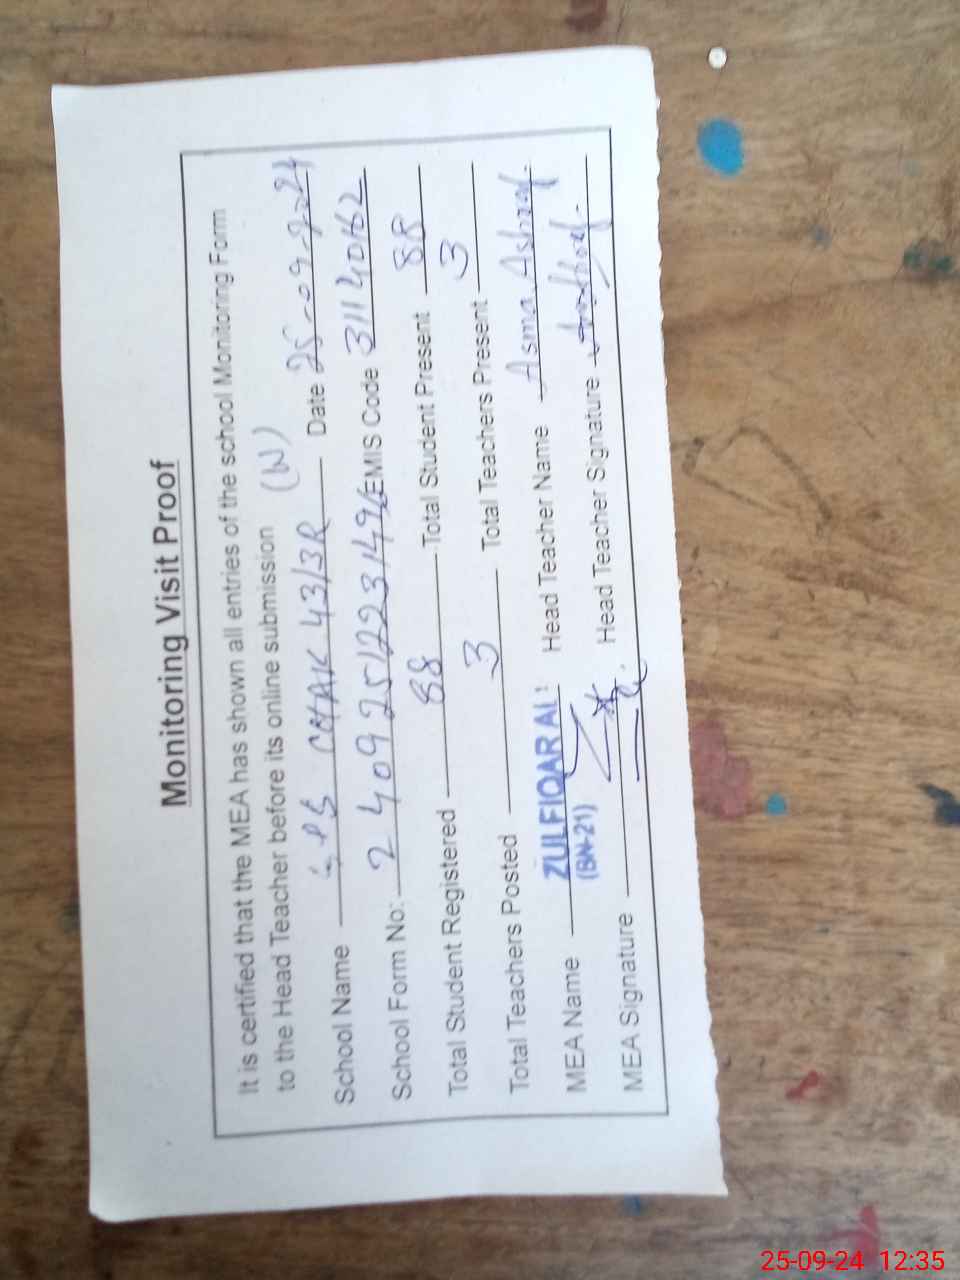 Monitoring Visit Proof
It is certified that the MEA has shown all entries of the school Monitoring Form
to the Head Teacher before its online submission
School Name GPS CHAK 43/3R (W) Date 25-09-2024
School Form No: 2409251223149 EMIS Code 31140162
Total Student Registered 88 Total Student Present 88
Total Teachers Posted 3 Total Teachers Present 3
MEA Name ZULFIQAR ALI Head Teacher Name Asma Ashraf
(BW-21)
MEA Signature Head Teacher Signature
25-09-24 12:35